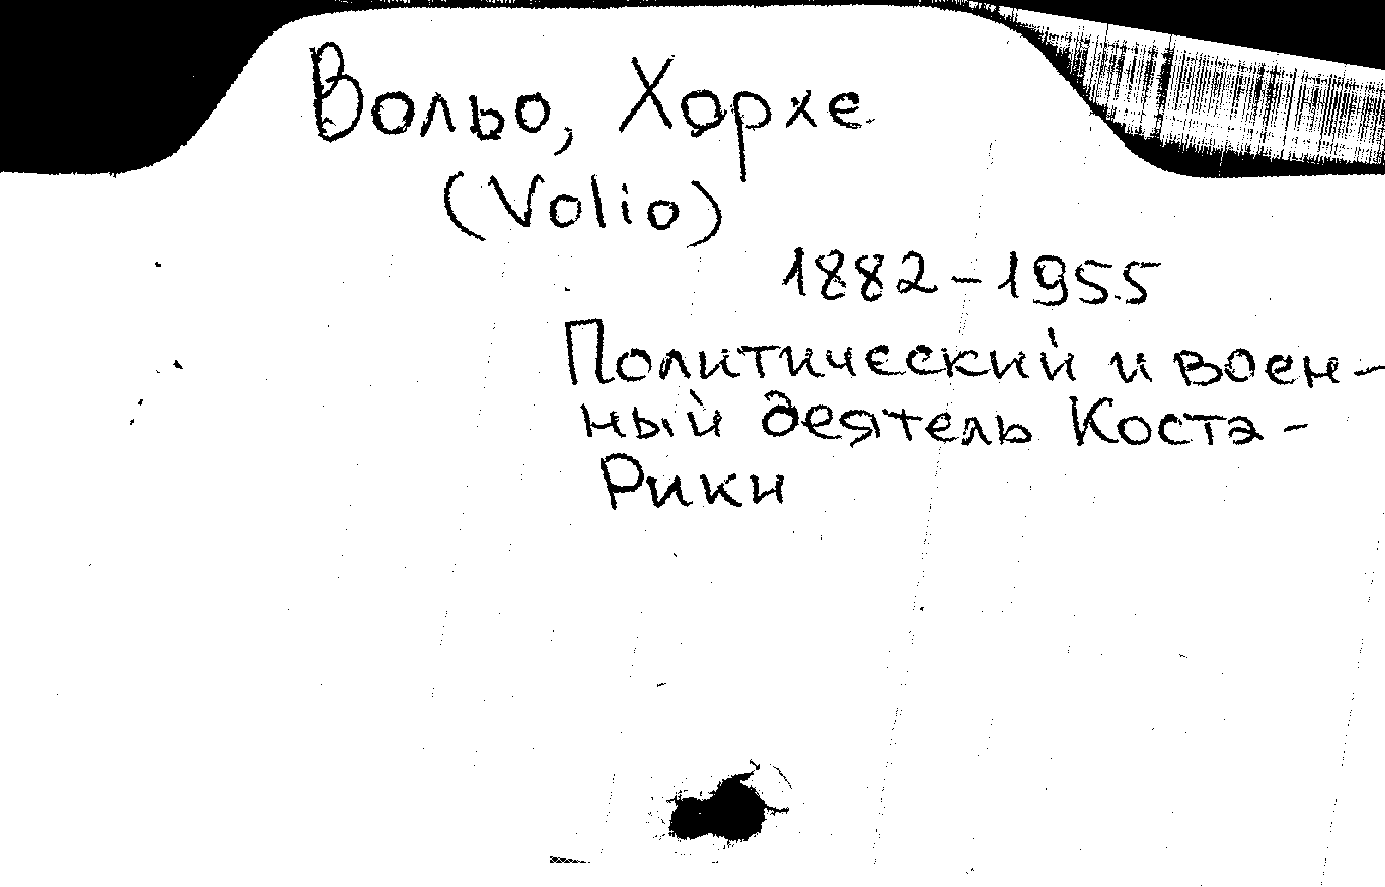 Вольо, Хорхе
(Volio)
1882-1955
Политический и воен-
ный деятель Коста-
Рики